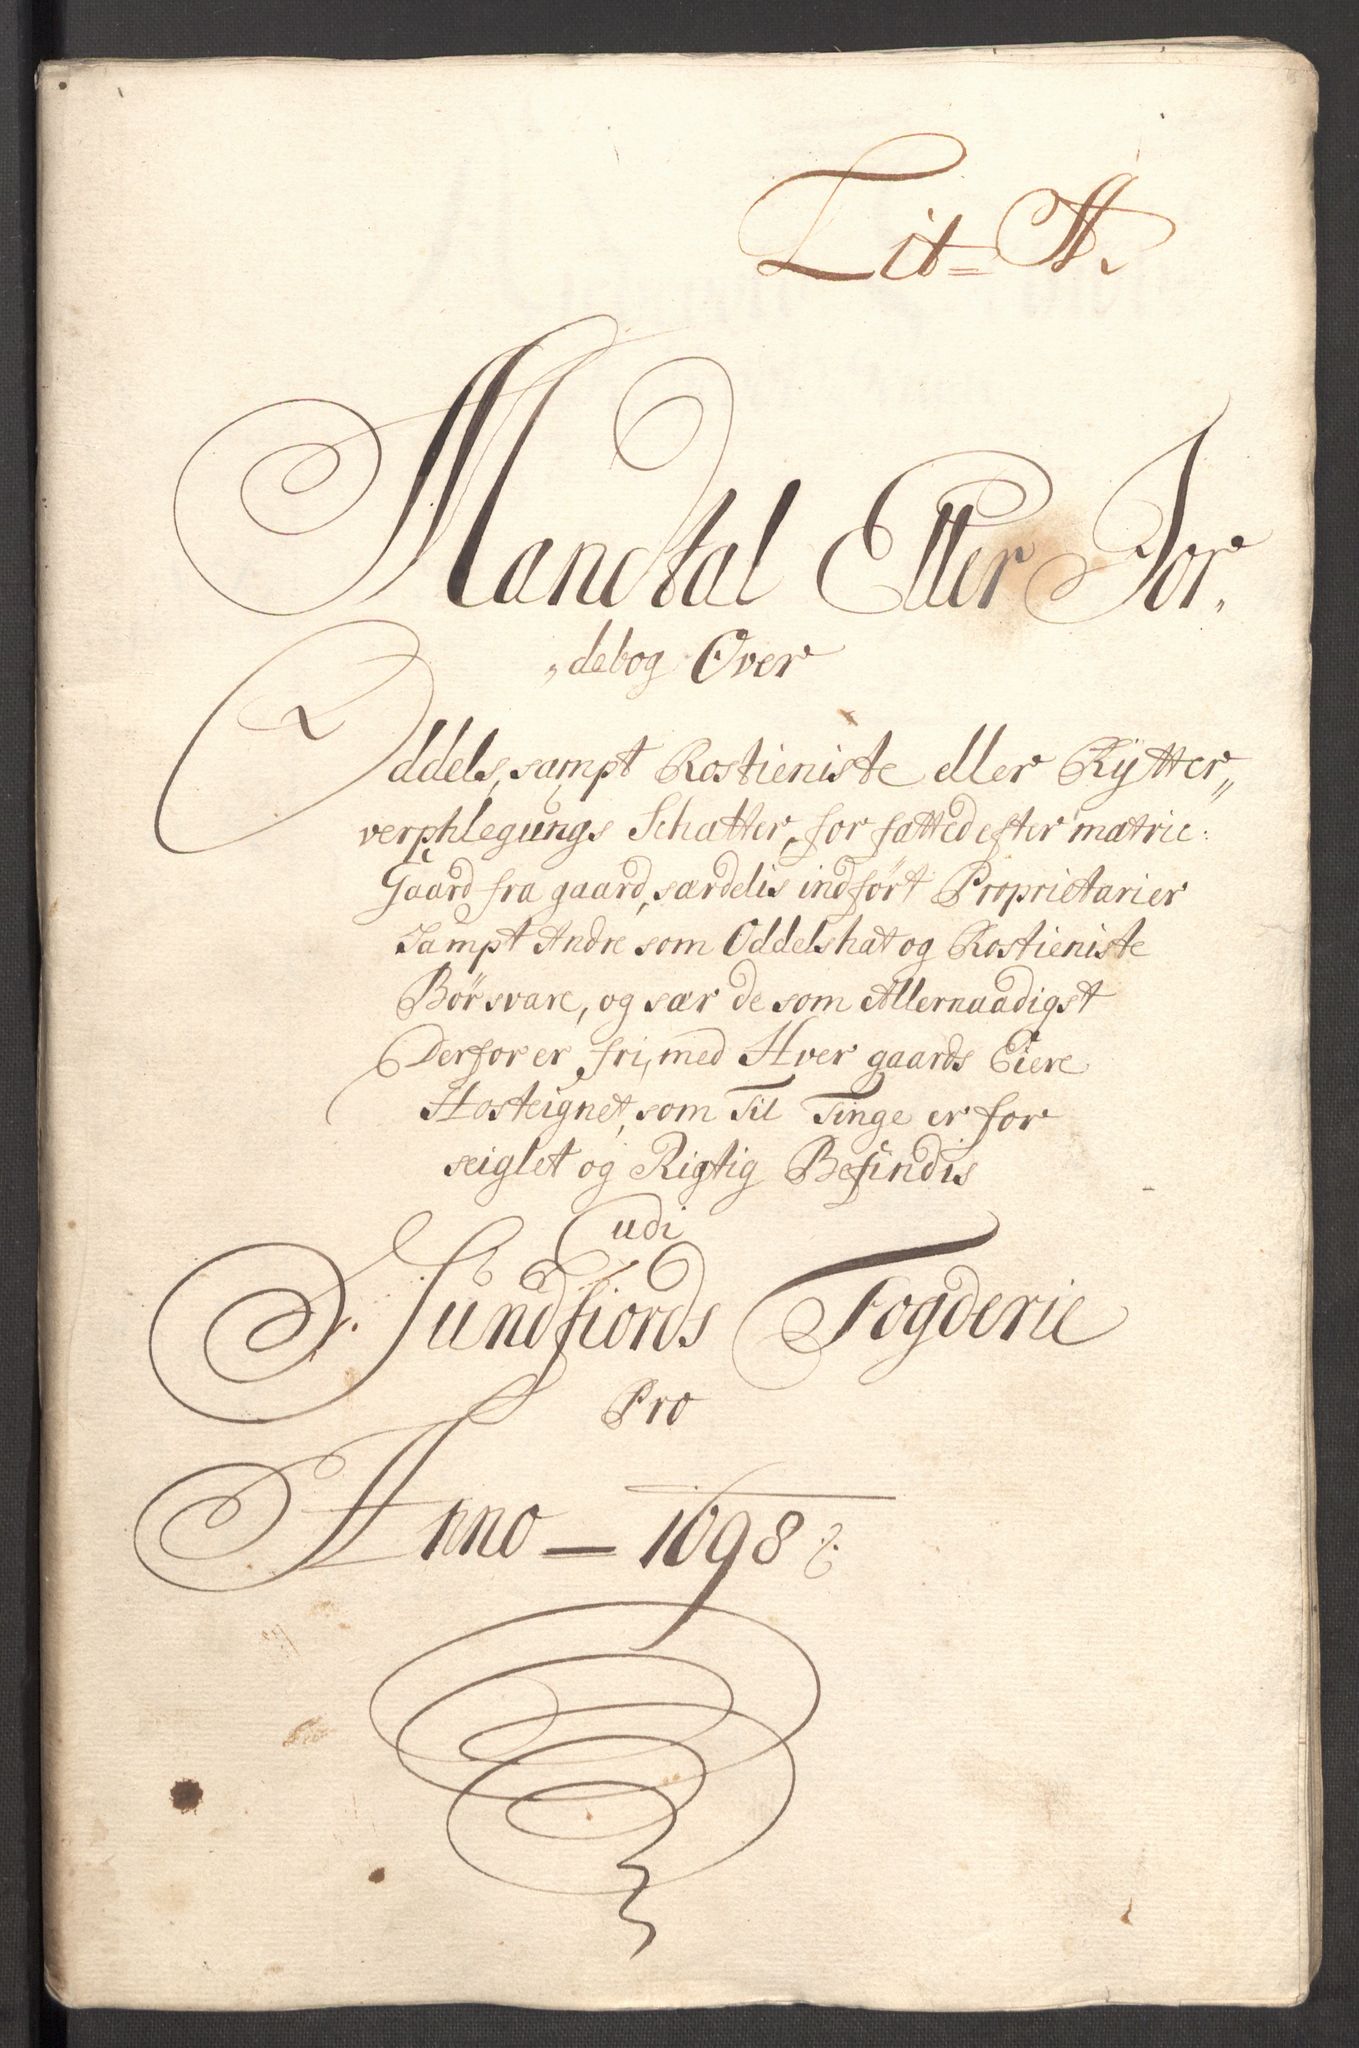 Lit= A.
Mandtal Eller Jor„
„debog Over
Oddels, sampt Rostieniste eller Rÿtter„
verphlegungs Schatter, for fatted efter matric:
Gaard fra gaard, særdelis indført Proprietarier
Sampt Andre som Oddelshat og Rostieniste
Bør svare, og sær de som Allernaadigst
Derfor er fri, med Hver gaards Eiere
Hosteignet, som Til Tinge er for
seiglet og Rigtig Befindis
udi
Sundfiords Fogderie
Pro
Anno — 1698